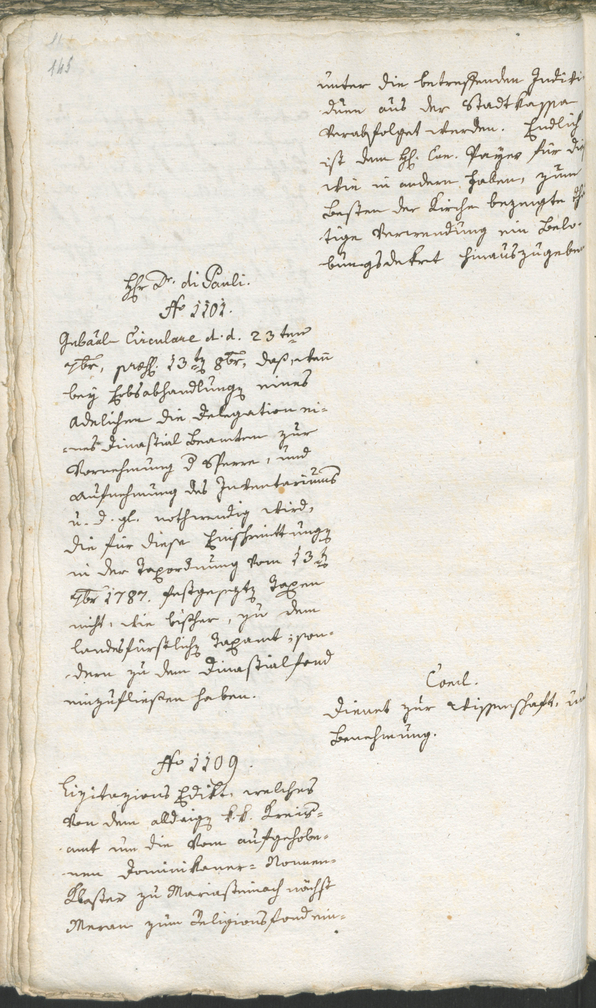 145
unter die betreffenden Indivi-
duen aus der Stadtkassa
verabfolget werden. Endlich
ist dem H. Con. Payer für die
wie in andern Haben, zum
Besten der Kirche bezeugte thä-
tige Verwendung ein Belo-
bungsdekret hinauszugeben
Hr. Dr. di Pauli.
No 1101.
Gubāal Circulare d. d. 23ten
7br, praes. 13ten 8br, daß, wenn
bey Erbsabhandlungen eines
Adelichen die Delegation ei-
nes Dinastial Beamten zur
Vornehmung d Sperre, und
Aufnehmung des Inventariums
u. d. gl. nothwendig wird,
die für diese Einschreittungen
in der Taxordnung vom 13ten
7br 1787. festgesezten Taxen
nicht, wie bisher, zu dem
landesfürstlichen Taxamt; son-
dern zu dem Dinastialfond
einzufließen haben.
Concl.
Dienet zur Wissenschaft, und
Benehmung.
No 1109.
Lizitazions Edikt, welches
von dem alldaigen k. k. Kreis-
amt um die vom aufgehobe-
nen Dominikaner-Nonnen-
Kloster zu Mariasteinach nächst
Meran zum Religionsfond ein-